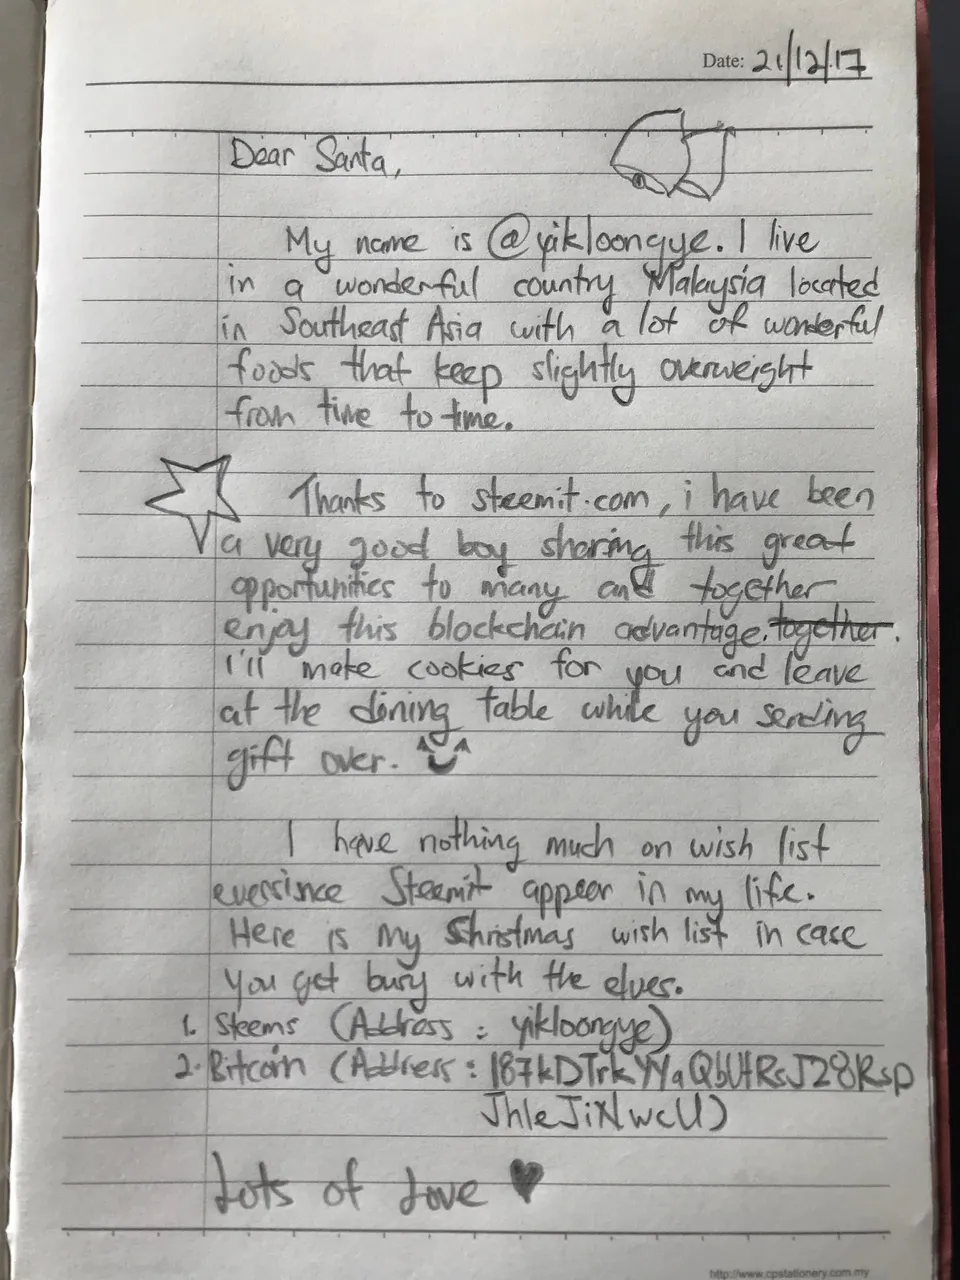 Date: 21/12/17
Dear Santa,
My name is @yikloongye. I live
in a wonderful country Malaysia located
in Southeast Asia with a lot of wonderful
foods that keep slightly overweight
from time to time.
Thanks to steemit.com, i have been
a very good boy sharing this great
opportunities to many and together
enjoy this blockchain advantage. together.
I'll make cookies for you and leave
at the dining table while you sending
gift over.
I have nothing much on wish list
eversince Steemit appear in my life.
Here is my Shristmas wish list in case
you get busy with the elves.
1. Steems (Address : yikloongye)
2. Bitcoin (Address :
Lots of Love
http://www.cpstationery.com.my